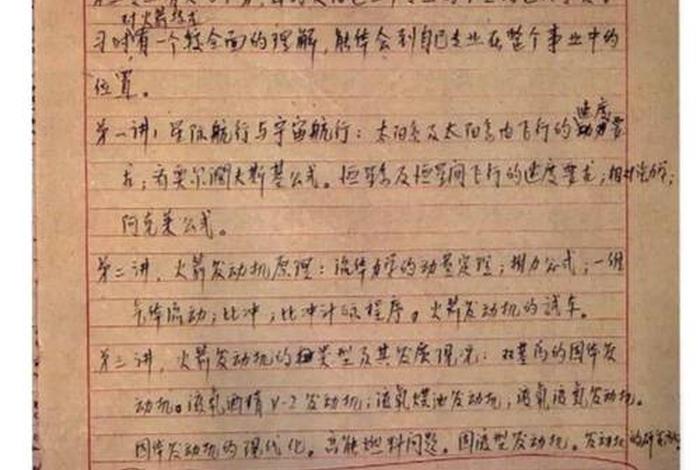 对火箭技术
习时有一个较全面的理解，能体会到自己专业在整个事业中的
位置。
速度
第一讲：星际航行与宇宙航行：太阳系及太阳系内飞行的要
求；齐奥尔阔夫斯基公式。恒星系及恒星间飞行的速度要求；相对论力学；
阿克莱公式。
第二讲，火箭发动机原理：流体力学的动量定理；推力公式；一维
气体流动；比冲；比冲计算程序。火箭发动机的试车。
第三讲，火箭发动机的类型及其发展现况：双基药的固体发
动机。液氧酒精V-2发动机；液氧煤油发动机，液氧液氢发动机。
固体发动机的现代化。高能燃料问题。固液型发动机。发动机的研究